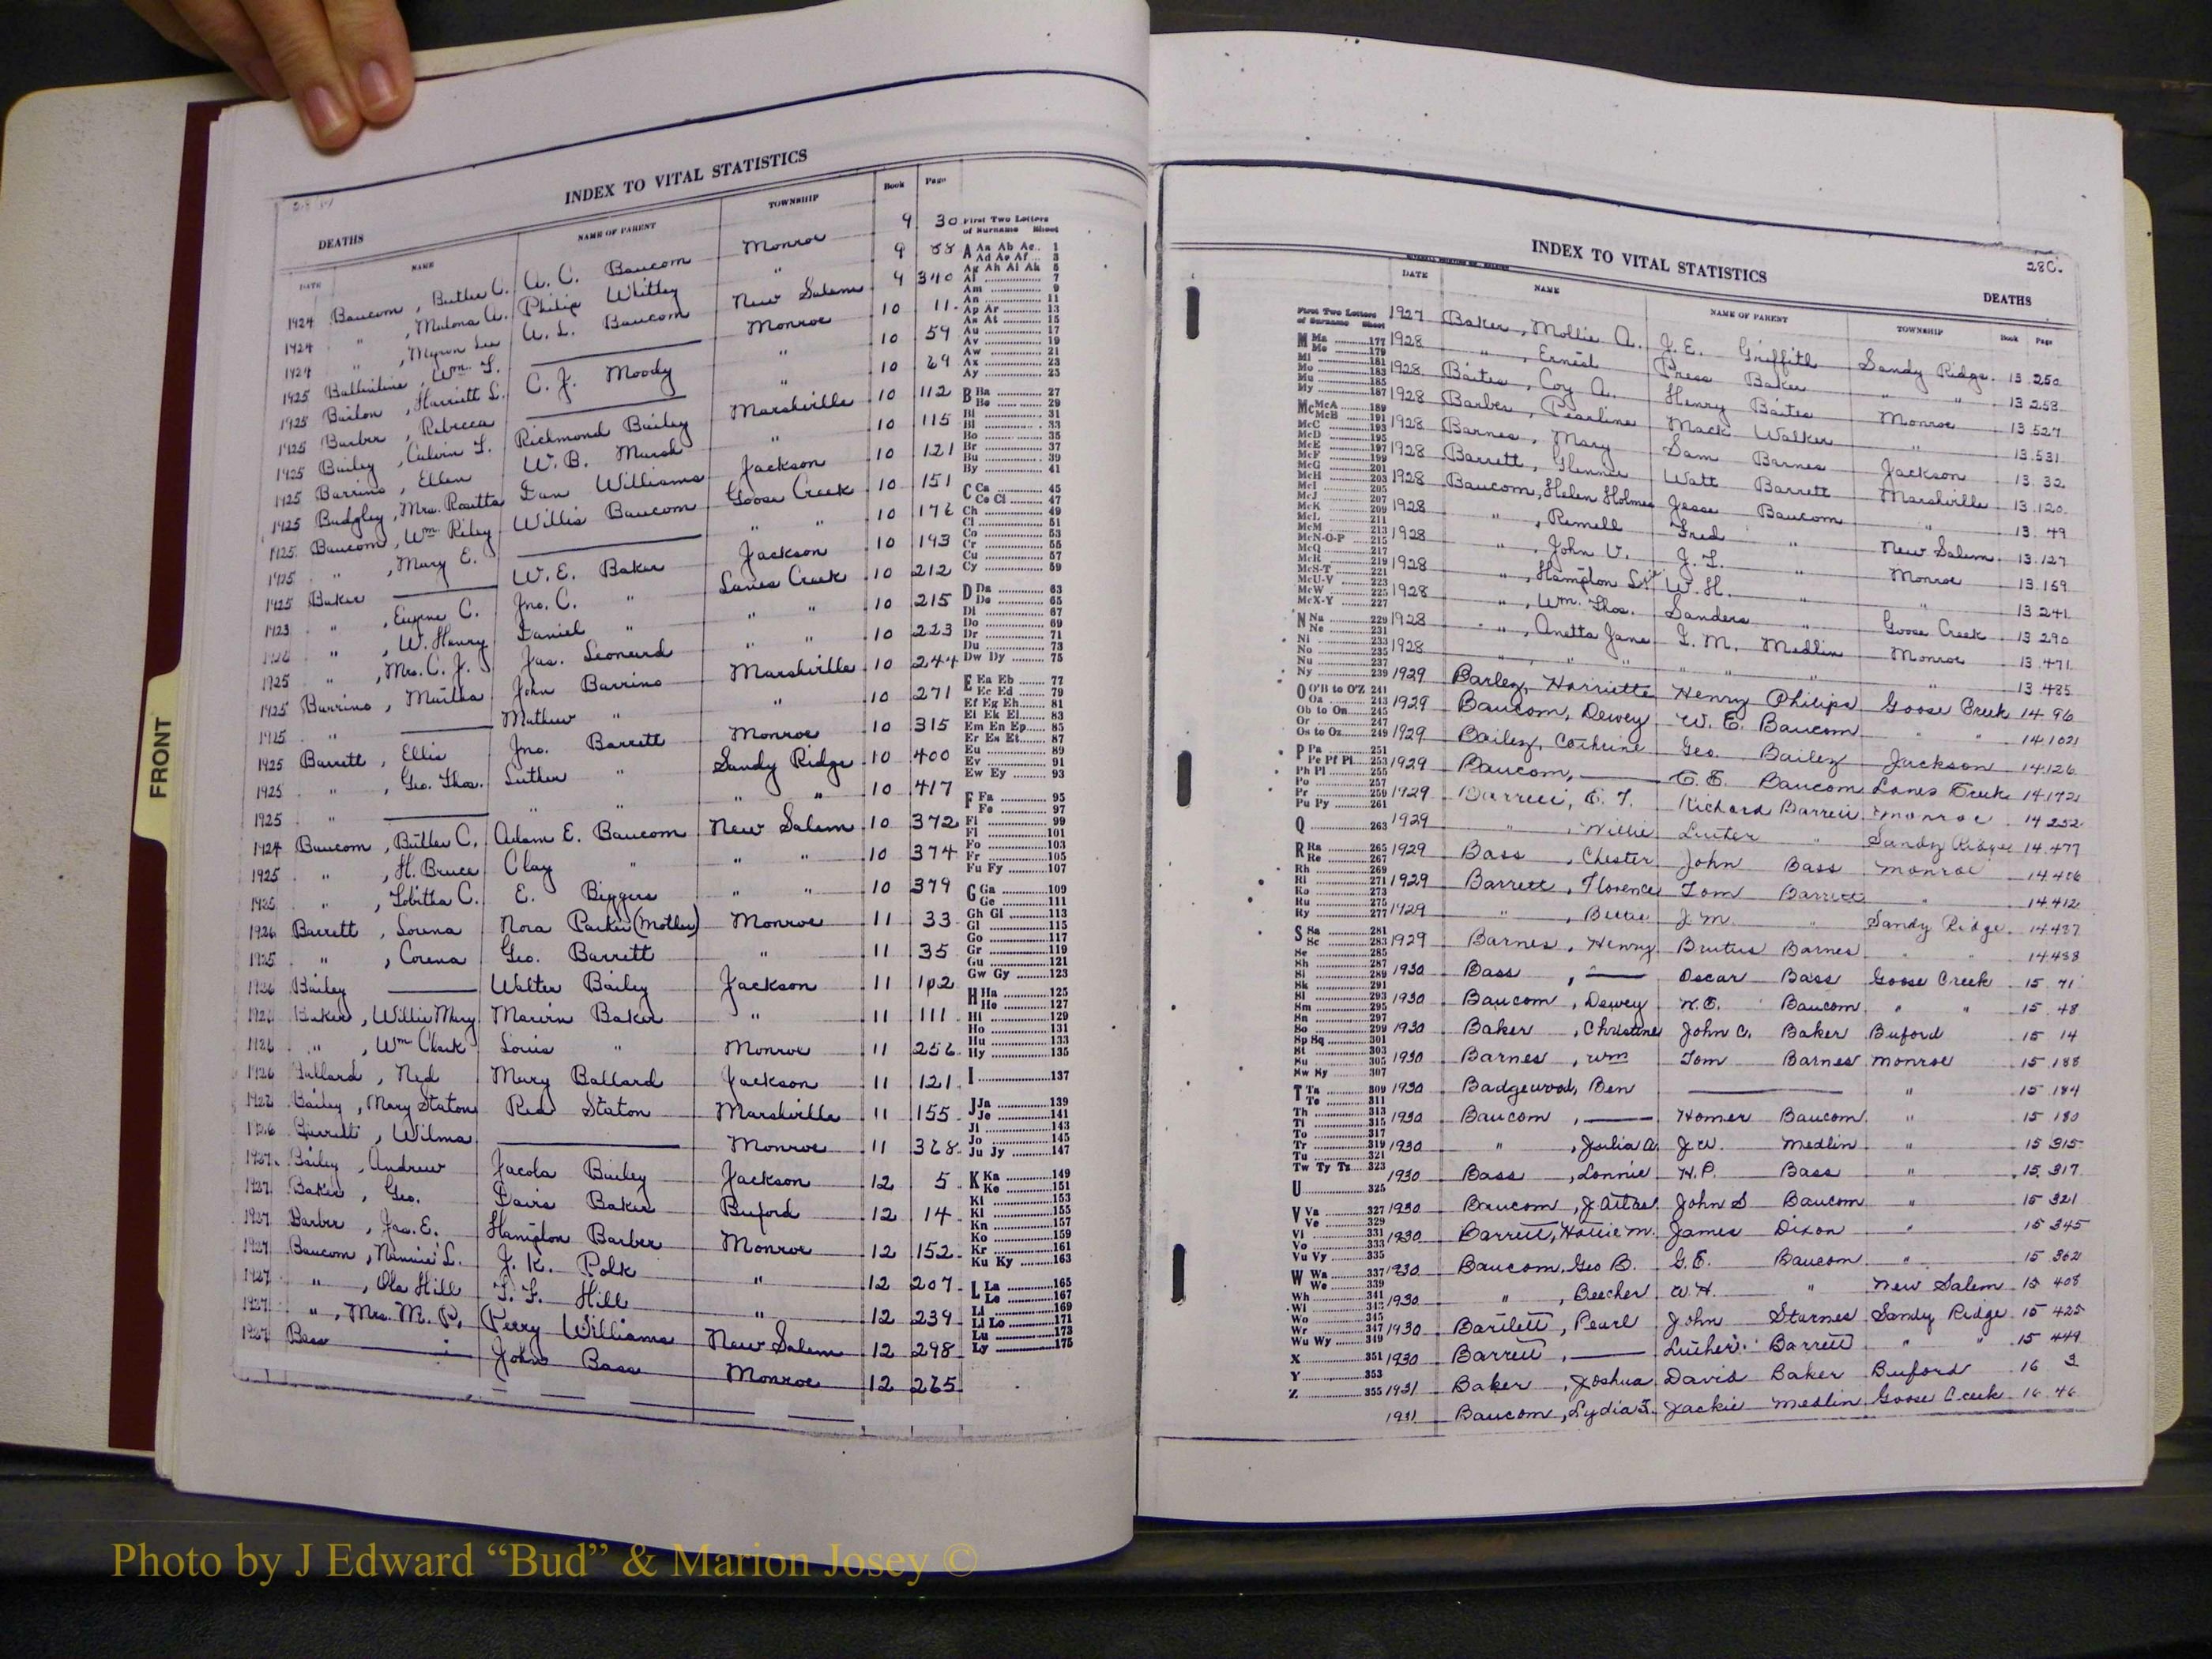 INDEX TO VITAL STATISTICS
DEATHS
DATE NAME NAME OF PARENT TOWNSHIP Book Page
1924 Baucom, Butler C. A. C. Baucom Monroe 9 30
1924 " , Malona A. Philip Whitley " 9
1924 " , Myron Lee A. L. Baucom New Salem 9 340
1925 Ballintine, Wm. T. ——— Monroe 10 11
1925 Bailon, Harriett L. C. J. Moody " 10 59
1925 Barber, Rebecca ——— " 10 69
1925 Bailey, Calvin T. Richmond Bailey Marshville 10 112
1925 Barrino, Ellen W. B. Marsh " 10 115
1925 Badgley, Mrs. Rosetta Dan Williams Jackson 10 121
1925 Baucom, Wm. Riley Willis Baucom Goose Creek 10 151
1925 " , Mary E. ——— " " 10
1925 Baker ——— W. E. Baker Jackson 10 193
" , Eugene C. Jno. C. " Lanes Creek 10 212
" , W. Henry Daniel " " " 10 215
1925 " , Mrs. C. J. Jas. Leonard " " 10 223
1925 Barrino, Martha John Barrino Marshville 10 244
1925 " ——— Mathew " " 10 271
1925 Barrett, Ellis Jno. Barrett Monroe 10 315
1925 " , Geo. Thos. Luther " Sandy Ridge 10 400
1925 " ——— " " " " 10 417
1924 Baucom, Butler C. Adam E. Baucom New Salem 10 372
1925 " , H. Bruce Clay " " " 10 374
1925 " , Tobitha C. E. Biggers " " 10 379
1926 Barrett, Lorena Nora Parker (Mother) Monroe 11 33
1925 " , Corena Geo. Barrett " 11 35
1926 Bailey ——— Walter Bailey Jackson 11 102
1926 Baker, Willie Mary Marvin Baker " 11 111
1926 " , Wm Clark Louis " Monroe 11 256
1926 Ballard, Ned Mary Ballard Jackson 11 121
Bailey, Mary Staton Red Staton Marshville 11 155
1926 Barrett, Wilma ——— Monroe 11 368
1927 Bailey, Andrew Jacola Bailey Jackson 12 5
1927 Baker, Geo. Davis Baker Buford 12 14
1927 Barber, Jas. E. Hampton Barber Monroe 12 152
1927 Baucom, Nannie L. J. K. Polk " 12 207
1927 " , Ola Hill T. F. Hill " 12 239
1927 " , Mrs. M. P. Perry Williams New Salem 12 298
1927 Bass ——— John Bass Monroe 12 265
First Two Letters
of Surname Sheet
A Aa Ab Ac.. 1
Ad Ae Af ... 3
Ag Ah Ai Ak 5
Al ............ 7
Am ............ 9
An ............ 11
Ap Ar ............ 13
As At ............ 15
Au ............ 17
Av ............ 19
Aw ............ 21
Ax ............ 23
Ay ............ 25
B Ba ............ 27
Be ............ 29
Bi ............ 31
Bl ............ 33
Bo ............ 35
Br ............ 37
Bu ............ 39
By ............ 41
C Ca ............ 45
Ce Ci ............ 47
Ch ............ 49
Cl ............ 51
Co ............ 53
Cr ............ 55
Cu ............ 57
Cy ............ 59
D Da ............ 63
De ............ 65
Di ............ 67
Do ............ 69
Dr ............ 71
Du ............ 73
Dw Dy ........ 75
E Ea Eb ........ 77
Ec Ed ........ 79
Ef Eg Eh...... 81
Ei Ek El...... 83
Em En Ep..... 85
Er Es Et...... 87
Eu ............ 89
Ev ............ 91
Ew Ey ........ 93
F Fa ............ 95
Fe ............ 97
Fi ............ 99
Fl ............ 101
Fo ............ 103
Fr ............ 105
Fu Fy ........ 107
G Ga ............ 109
Ge ............ 111
Gh Gi ........ 113
Gl ............ 115
Go ............ 117
Gr ............ 119
Gu ............ 121
Gw Gy ........ 123
H Ha ............ 125
He ............ 127
Hi ............ 129
Ho ............ 131
Hu ............ 133
Hy ............ 135
I ............ 137
J Ja ............ 139
Je ............ 141
Ji ............ 143
Jo ............ 145
Ju Jy ........ 147
K Ka ............ 149
Ke ............ 151
Ki ............ 153
Kl ............ 155
Kn ............ 157
Ko ............ 159
Kr ............ 161
Ku Ky ........ 163
L La ............ 165
Le ............ 167
Li ............ 169
Ll Lo ........ 171
Lu ............ 173
Ly ............ 175
FRONT
INDEX TO VITAL STATISTICS
28C.
DEATHS
DATE NAME NAME OF PARENT TOWNSHIP Book Page
1927 Baker, Mollie A. J. E. Griffith Sandy Ridge 13 250
1928 " , Ernest Press Baker " " 13 258
1928 Baites, Coy A. Henry Baites Monroe 13 527
1928 Barber, Pearline Mack Walker " 13 531
1928 Barnes, Mary Sam Barnes Jackson 13 32
1928 Barrett, Glennie Watt Barrett Marshville 13 120
1928 Baucom, Helen Holmes Jesse Baucom " 13 49
1928 " , Remell Fred " New Salem 13 127
1928 " , John V. J. L. " Monroe 13 159
1928 " , Hampton W. H. " " 13 241
1928 " , Wm. Thos. Sanders " Goose Creek 13 290
1928 " , Anetta Jane G. M. Medlin Monroe 13 471
1928 " " " " " " " 13 485
1929 Barley, Harriette Henry Philips Goose Creek 14 96
1929 Baucom, Dewey W. E. Baucom " " 14 102
1929 Bailey, Cathrine Geo. Bailey Jackson 14 126
1929 Baucom, ——— C. E. Baucom Lanes Creek 14 172
1929 Barrett, E. T. Richard Barrett Monroe 14 252
1929 " , Willie Luther " Sandy Ridge 14 477
1929 Bass, Chester John Bass Monroe 14 406
1929 Barrett, Florence Tom Barrett " 14 412
1929 " , Bettie J. M. " Sandy Ridge 14 437
1929 Barnes, Henry Brutus Barnes " " 14 438
1930 Bass, ——— Oscar Bass Goose Creek 15 71
1930 Baucom, Dewey W. E. Baucom " " 15 48
1930 Baker, Christine John C. Baker Buford 15 14
1930 Barnes, Wm Tom Barnes Monroe 15 188
1930 Badgewood, Ben ——— " 15 184
1930 Baucom, ——— Homer Baucom " 15 180
1930 " , Julia A. J. W. Medlin " 15 315
1930 Bass, Lonnie H. P. Bass " 15 317
1930 Baucom, J. John S Baucom " 15 321
1930 Barrett, Hattie M. James Dixon " 15 345
1930 Baucom, Geo B. G. E. Baucom " 15 362
1930 " , Beecher W. H. " New Salem 15 408
1930 Bartlett, Pearl John Starnes Sandy Ridge 15 425
1930 Barrett, ——— Luther Barrett " " 15 449
1931 Baker, Joshua David Baker Buford 16 3
1931 Baucom, Lydia Jackie Medlin Goose Creek 16 46
First Two Letters
of Surname Sheet
M Ma ........ 177
Me ........ 179
Mi ........ 181
Mo ........ 183
Mu ........ 185
My ........ 187
Mc McA ........ 189
McB ........ 191
McC ........ 193
McD ........ 195
McE ........ 197
McF ........ 199
McG ........ 201
McH ........ 203
McI ........ 205
McJ ........ 207
McK ........ 209
McL ........ 211
McM ........ 213
McN-O-P ..... 215
McQ ........ 217
McR ........ 219
McS-T ........ 221
McU-V ........ 223
McW ........ 225
McX-Y ........ 227
N Na ........ 229
Ne ........ 231
Ni ........ 233
No ........ 235
Nu ........ 237
Ny ........ 239
O O'B to O'Z 241
Oa ........ 243
Ob to On..... 245
Or ........ 247
Os to Oz..... 249
P Pa ........ 251
Pe Pf Pl.... 253
Ph Pi ........ 255
Po ........ 257
Pr ........ 259
Pu Py ........ 261
Q ........ 263
R Ra ........ 265
Re ........ 267
Rh ........ 269
Ri ........ 271
Ro ........ 273
Ru ........ 275
Ry ........ 277
S Sa ........ 281
Sc ........ 283
Se ........ 285
Sh ........ 287
Si ........ 289
Sk ........ 291
Sl ........ 293
Sm ........ 295
Sn ........ 297
So ........ 299
Sp Sq ........ 301
St ........ 303
Su ........ 305
Sw Sy ........ 307
T Ta ........ 309
Te ........ 311
Th ........ 313
Ti ........ 315
To ........ 317
Tr ........ 319
Tu ........ 321
Tw Ty Tz.... 323
U ........ 325
V Va ........ 327
Ve ........ 329
Vi ........ 331
Vo ........ 333
Vu Vy ........ 335
W Wa ........ 337
We ........ 339
Wh ........ 341
Wi ........ 343
Wo ........ 345
Wr ........ 347
Wu Wy ........ 349
X ........ 351
Y ........ 353
Z ........ 355
Photo by J Edward “Bud” & Marion Josey ©